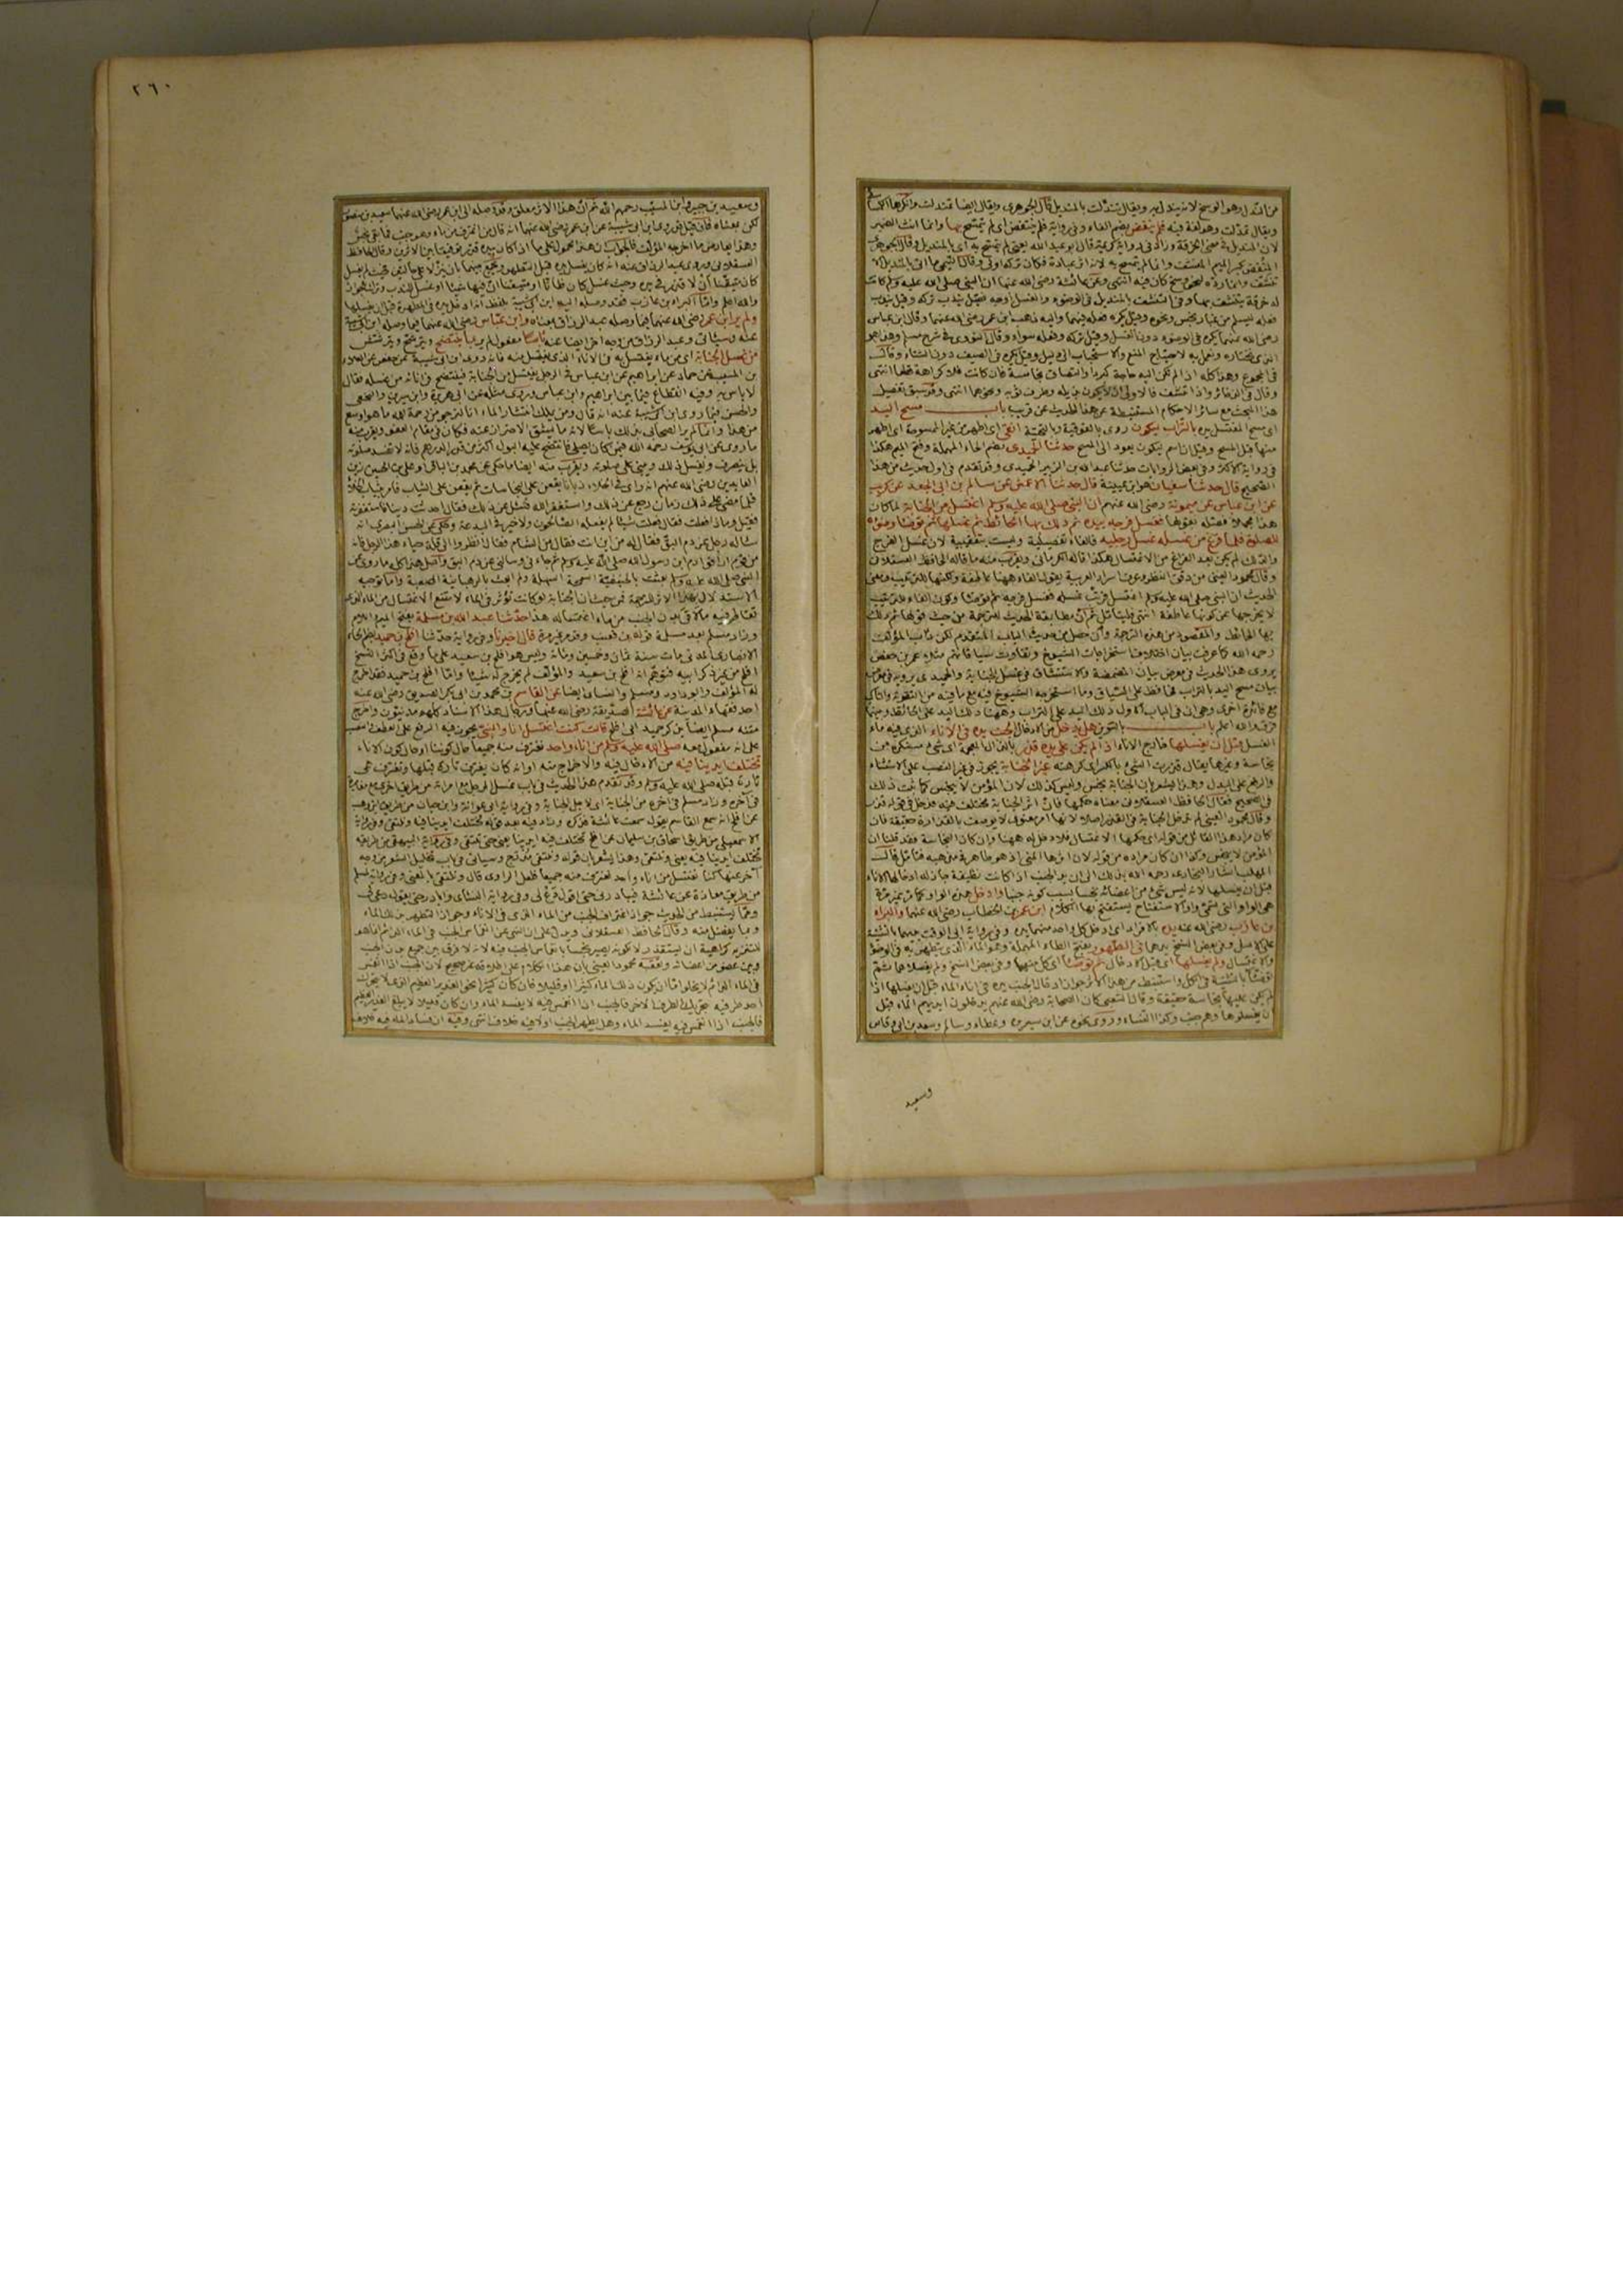 من الندل وهو الوسخ لانه يندل به ويقال تندلت بالمنديل قال الجوهري ويقال ايضا تمندلت وانكرها الكسائي
ويقال تمدلت وهو لغة فيه فلم ينفض بضم الفاء وفي رواية فلم ينتفض اي لم يتمسح بها وانما انث الضمير
لان المنديل في معنى الخرقة وزاد في رواية كريمة قال ابو عبد الله يعني لم يتمسح به اي بالمنديل وقال الجوهري
تنشف وانما رده لنحو وسخ كان فيه انتهى وعن عائشة رضي الله عنها ان النبي صلى الله عليه وسلم كانت
له خرقة يتنشف بها وفي التنشف بالمنديل في الوضوء والغسل اوجه فقيل يندب تركه وقيل يندب
رضي الله عنهما يكره في الوضوء دون الغسل وقيل تركه وفعله سواء وقال النووي في شرح مسلم وهذا هو
الذي نختاره ونعمل به لاحتياج المنع والاستحباب الى دليل وقيل يكره في الصيف دون الشتاء وقال
في المجموع وهذا كله اذا لم تكن اليه حاجة كبرد والتصاق نجاسة فان كانت فلا كراهة قطعا انتهى
وقال في الذخائر واذا تنشف فالاولى ان لا يكون بذيله وطرف ثوبه ونحوهما انتهى وقد سبق تفصيل
هذا البحث مع سائر الاحكام المستنبطة من هذا الحديث عن قريب باب مسح اليد
اي مسح المغتسل يده بالتراب ليكون روي بالفوقية وبالتحتية انقى اي اطهر من غير الممسوحة اي اطهر
منها قبل المسح وقيل ان اسم ليكون يعود الى المسح حدثنا الحميدي بضم الحاء المهملة وفتح الميم هكذا
في رواية الاكثر وفي بعض الروايات حدثنا عبد الله بن الزبير الحميدي وقد تقدم في اول حديث من هذا
الصحيح قال حدثنا سفيان هو ابن عيينة قال حدثنا الاعمش عن سالم بن ابي الجعد عن كريب
عن ابن عباس عن ميمونة رضي الله عنهم ان النبي صلى الله عليه وسلم اغتسل من الجنابة لما كان
هذا مجملا فصله بقولها فغسل فرجه بيده ثم دلك بها الحائط ثم غسلها ثم توضأ وضوءه
للصلوة فلما فرغ من غسله غسل رجليه فالفاء تفصيلية وليست بتعقيبية لان غسل الفرج
والدلك لم يكن بعد الفراغ من الاغتسال هكذا قاله الكرماني ويقرب منه ما قاله الحافظ العسقلاني
وقال محمود العيني من دقق النظر وعرف اسرار العربية يقول الفاء ههنا عاطفة ولكنها للترتيب ومعنى
الحديث ان النبي صلى الله عليه وسلم اغتسل فرتب غسله فغسل فرجه ثم توضأ وكون الفاء للترتيب
لا يخرجها عن كونها عاطفة انتهى فليتأمل ثم ان مطابقة الحديث للترجمة من حيث قولها ثم دلك
بها الحائط والمقصود من هذه الترجمة وان حصل من حديث الباب المتقدم لكن دأب المؤلف
رحمه الله كما عرفت بيان اختلافات استخراجات الشيوخ وتفاوت سياقاتهم مثلا عمر بن حفص
يروي هذا الحديث في معرض بيان المضمضة والاستنشاق في غسل الجنابة والحميدي يرويه في معرض
بيان مسح اليد بالتراب فحافظ على السياق وما استخرجه الشيوخ فيه مع ما فيه من التقوية والتأكيد
مع فائدة اخرى وهي ان في الباب الاول دلك اليد على التراب وههنا دلك اليد على الحائط وبينهما
فرق والله اعلم باب بالتنوين هل يدخل من الادخال الجنب يده في الاناء الذي فيه ماء
الغسل قبل ان يغسلها خارج الاناء اذا لم يكن على يده قذر بالذال المعجمة اي شيء مستكره من
نجاسة وغيرها يقال قذرت الشيء بالكسر اي كرهته غير الجنابة يجوز في غير النصب على الاستثناء
والرفع على البدل وهذا يشعر بان الجنابة نجس وليس كذلك لان المؤمن لا ينجس كما ثبت ذلك
في الصحيح فقال الحافظ العسقلاني معناه حكمها فان اثر الجنابة مختلف فيه فدخل في قوله قذر
وقال محمود العيني لم تدخل الجنابة في القذر اصلا لانها امر معنوي لا يوصف بالقذارة حقيقة فان
كان مراد هذا القائل من قوله اي حكمها الاغتسال فلا دخل له ههنا وان كان النجاسة فقد قلنا ان
المؤمن لا ينجس وكذا ان كان مراده من قوله لان اثرها المني اذ هو طاهر في مذهبه فتأمل قال
المهلب اشار البخاري رحمه الله بذلك الى ان يد الجنب اذا كانت نظيفة جاز له ادخالها الاناء
قبل ان يغسلها لانه ليس شيء من اعضائه نجسا بسبب كونه جنبا وادخل
هي الواو التي تسمى واو الاستفتاح يستفتح بها الكلام ابن عمر بن الخطاب رضي الله عنهما والبراء
بن عازب رضي الله عنه يده بالافراد اي ادخل كل واحد منهما يده وفي رواية ابي الوقت يديهما بالتثنية
على الاصل وفي بعض النسخ يدهما في الطهور بفتح الطاء المهملة وهو الماء الذي يتطهر به في الوضوء
والاغتسال ولم يغسلها اي قبل الادخال ثم توضأ اي كل منهما وفي بعض النسخ ولم يغسلاهما ثم
توضآ بالتثنية في الكل واستنبط من هذا الاثر جواز ادخال الجنب يده في اناء الماء قبل ان يغسلها اذا
لم يكن عليها نجاسة حقيقة وقال الشعبي كان الصحابة رضي الله عنهم يدخلون ايديهم الماء قبل
ان يغسلوها وهم جنب وكذا النساء وروي نحوه عن ابن سيرين وعطاء وسالم وسعد بن ابي وقاص
وسعيد
٢٦٠
وسعيد بن جبير وابن المسيب رحمهم الله ثم ان هذا الاثر معلق وقد وصله الى ابن عمر رضي الله عنهما سعيد بن منصور
لكن بمعناه فان قيل قد روى ابن ابي شيبة عن ابن عمر رضي الله عنهما انه قال من اغترف من ماء وهو جنب فما بقي نجس
والله اعلم واما اثر البراء بن عازب فقد وصله ابن ابي شيبة بلفظ انه ادخل يده في المطهرة قبل ان يغسلها
ولم ير ابن عمر رضي الله عنهما فيما وصله عبد الرزاق بمعناه وابن عباس رضي الله عنهما فيما وصله ابن ابي شيبة
من غسل الجنابة اي من ماء يغتسل به في الاناء الذي يغتسل منه فانه روى ابن ابي شيبة عن حفص عن العلاء
بن المسيب عن حماد عن ابراهيم عن ابن عباس في الرجل يغتسل من الجنابة فينتضح في انائه من غسله فقال
لا بأس به وفيه انقطاع فيما بين ابراهيم وابن عباس وروي مثله عن ابي هريرة وابن سيرين والنخعي
والحسن فيما روى ابن ابي شيبة عنه انه قال ومن يملك انتشار الماء انا لنرجو من رحمة الله ما هو اوسع
من هذا وانما لم ير الصحابي بذلك بأسا لانه مما يشق الاحتراز عنه فكان في مقام العفو ويقرب منه
ما روي عن ابي يوسف رحمه الله فيمن كان يصلي فانتضح عليه البول اكثر من قدر الدرهم فانه لا تفسد صلوته
بل ينصرف ويغسل ذلك ويبني على صلوته ويقرب منه ايضا ما حكي عن محمد بن الباقر او علي بن الحسين زين
العابدين رضي الله عنهم انه رأى في الخلاء ذبابا يقعن على النجاسات ثم يقعن على الثياب فامر بثياب للخلاء
فلما مضى على ذلك زمان رجع عن ذلك واستغفر الله فسئل عن ذلك فقال احدثت ذنبا فاستغفرته
فقيل وماذا فعلت فقال فعلت شيئا لم يفعله الصالحون ولا خير في البدعة وحكي عن الحسن البصري انه
سأله رجل عن دم البق فقال له من اين انت فقال من الشام فقال انظروا الى قلة حياء هذا الرجل فانه
من قوم اراقوا دم ابن رسول الله صلى الله عليه وسلم ثم جاء في وسألني عن دم البق واصل هذا كله ما روي عن
النبي صلى الله عليه وسلم بعثت بالحنيفية السمحة السهلة ولم ابعث بالرهبانية الصعبة واما توجيه
الاستدلال بهذا الاثر للترجمة فمن حيث ان الجنابة لو كانت تؤثر في الماء لامتنع الاغتسال من الماء الذي
تقاطر فيه ما لاقى بدن الجنب من ماء اغتساله هذا حدثنا عبد الله بن مسلمة بفتح الميم واللام
وزاد مسلم بعد مسلمة قوله بن قعنب وقد مر غير مرة قال اخبرنا وفي رواية حدثنا افلح بن حميد بضم الحاء
الانصاري المدني مات سنة ثمان وخمسين ومائة وليس هو افلح بن سعيد على ما وقع في اكثر النسخ
افلح من غير ذكر ابيه فتوهم انه افلح بن سعيد والمؤلف لم يخرج له شيئا واما افلح بن حميد فقد اخرج
له المؤلف وابو داود ومسلم والنسائي ايضا عن القاسم بن محمد بن ابي بكر الصديق رضي الله عنه
احد فقهاء المدينة عن عائشة الصديقة رضي الله عنها ورجال هذا الاسناد كلهم مدنيون واخرج
متنه مسلم ايضا قالت كنت اغتسل انا والنبي يجوز فيه الرفع على العطف والنصب
على انه مفعول معه صلى الله عليه وسلم من اناء واحد نغترف منه جميعا حال كوننا او حال كون الاناء
تختلف ايدينا فيه من الادخال فيه والاخراج منه او انه كان يغترف تارة قبلها وتغترف هي
تارة قبله صلى الله عليه وسلم وقد تقدم هذا الحديث في باب غسل الرجل مع امرأته من طريق اخرى مع مغايرة
في آخره وزاد مسلم في آخره من الجنابة اي لاجل الجنابة وفي رواية ابي عوانة وابن حبان من طريق ابن وهب
عن افلح انه سمع القاسم يقول سمعت عائشة فذكره وزاد فيه بعد قوله تختلف ايدينا فيه وتلتقي وفي رواية
الاسمعيلي من طريق اسحاق بن سليمان عن افلح تختلف فيه ايدينا يعني حتى تلتقي وفي رواية البيهقي من طريقه
تختلف ايدينا فيه يعني وتلتقي وهذا يشعر بان قوله وتلتقي مدرج وسيأتي في باب تخليل الشعر من وجه
آخر عنها كنا نغتسل من اناء واحد نغترف منه جميعا فلعل الراوي قال وتلتقي بالمعنى وفي رواية لمسلم
من طريق معاذة عن عائشة فيبادرني حتى اقول دع لي وفي رواية النسائي وابادره حتى يقول دعي لي
ومما يستنبط من الحديث جواز اغتراف الجنب من الماء الذي في الاناء وجواز التطهر بذلك الماء
وبما يفضل منه وقال الحافظ العسقلاني ويدل على ان النهي عن انغماس الجنب في الماء الدائم انما هو
للتنزيه كراهية ان يستقذر لا لكونه يصير نجسا بانغماس الجنب فيه لانه لا فرق بين جميع بدن الجنب
وبين عضو من اعضائه وتعقبه محمود العيني بان هذا الكلام على اطلاقه غير صحيح لان الجنب اذا انغمس
في الماء الدائم لا يخلو اما ان يكون ذلك الماء كثيرا او قليلا فان كان كثيرا نحو الغدير العظيم الذي لا يتحرك
احد طرفيه بتحريك الطرف الآخر فالجنب اذا انغمس فيه لا يفسد الماء وان كان قليلا لا يبلغ الغدير العظيم
فالجنب اذا انغمس فيه يفسد الماء وهل يطهر الجنب او لا فيه خلاف